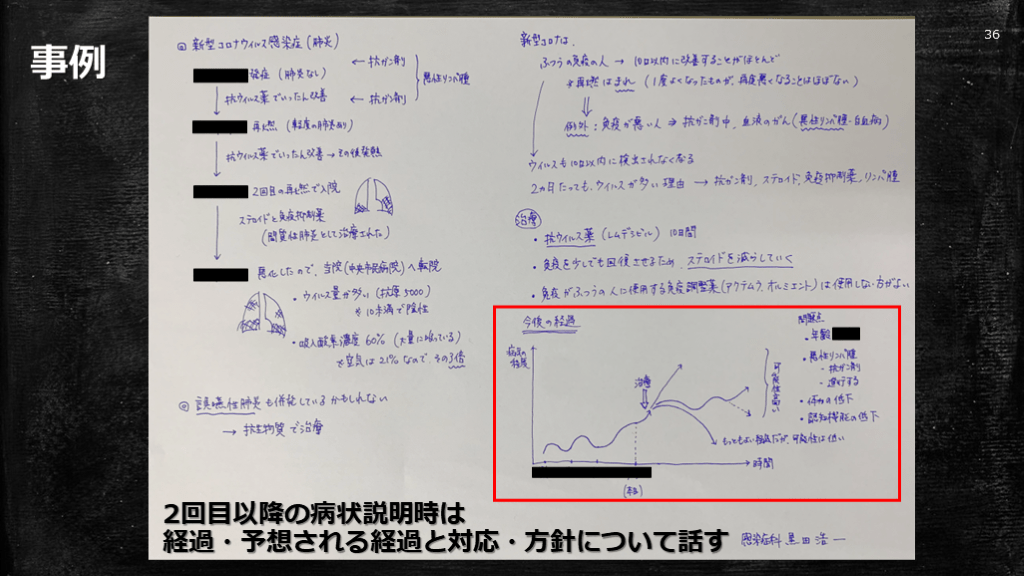 36
事例
新型コロナウイルス感染症(肺炎)
発症(肺炎なし) ← 抗ガン剤
抗ウイルス薬でいったん改善 ← 抗ガン剤
悪性リンパ腫
再燃(軽度の肺炎あり)
抗ウイルス薬でいったん改善→その後発熱
2回目の再燃で入院
ステロイドと免疫抑制薬
(間質性肺炎として治療された)
悪化したので、当院(中央市民病院)へ転院
・ウイルス量が多い(抗原5000)
※10未満で陰性
・吸入酸素濃度60%(大量に吸っている)
※空気は21%なので、その3倍
誤嚥性肺炎も併発しているかもしれない
→ 抗生物質で治療
新型コロナは、
ふつうの免疫の人 → 10日以内に改善することがほとんど
※再燃はまれ(1度よくなったものが、再度悪くなることはほぼない)
例外:免疫が悪い人 → 抗ガン剤中、血液のがん(悪性リンパ腫・白血病)
ウイルスも10日以内に検出されなくなる
2ヵ月たっても、ウイルスが多い理由 → 抗ガン剤、ステロイド、免疫抑制薬、リンパ腫
治療
・抗ウイルス薬(レムデシビル)10日間
・免疫を少しでも回復させるため、ステロイドを減らしていく
・免疫がふつうの人に使用する免疫調整薬(アクテムラ、オルミエント)は使用しない方がよい
今後の経過
病気の
程度
治療
可能性高い
もっともよい経過だが、可能性は低い
時間
(転院)
問題点
・年齢
・悪性リンパ腫
- 抗ガン剤
- 進行する
・体力の低下
・認知機能の低下
2回目以降の病状説明時は
経過・予想される経過と対応・方針について話す
感染症科 黒田浩一